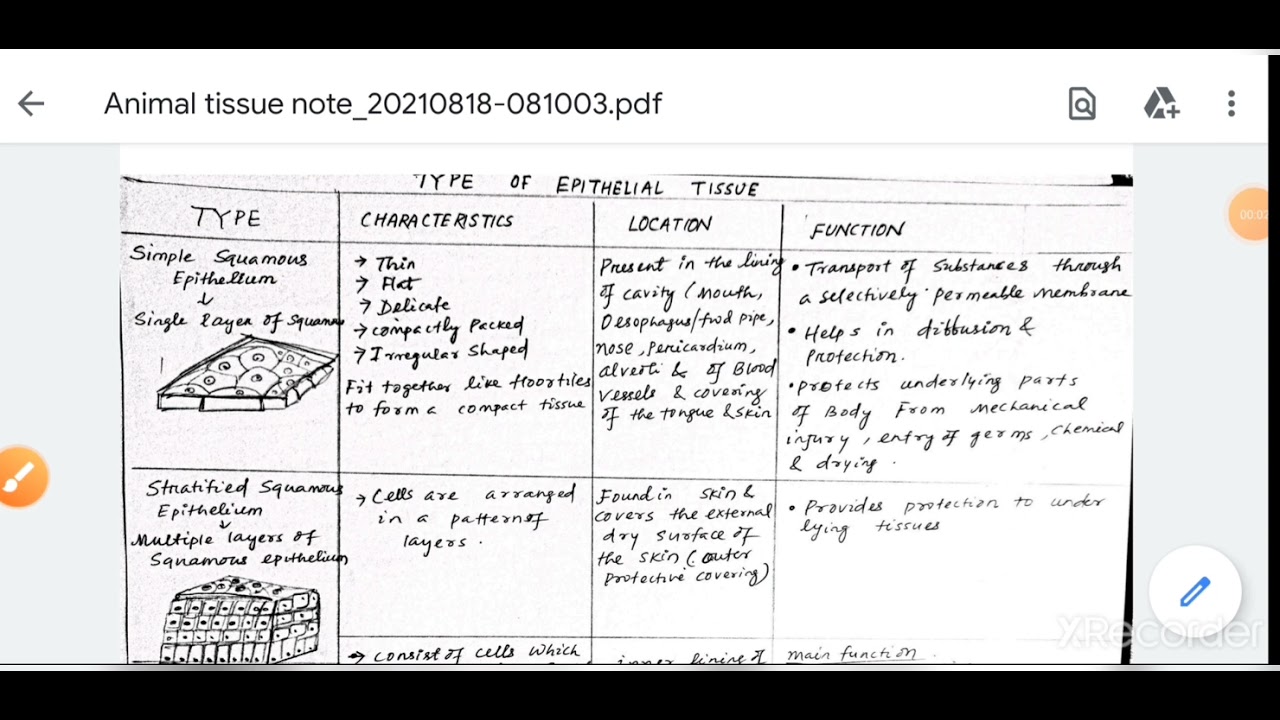 Animal tissue note_20210818-081003.pdf
00:02
TYPE OF EPITHELIAL TISSUE
TYPE
CHARACTERISTICS
LOCATION
FUNCTION
Simple Squamous
Epithelium
↓
Single layer of Squamo
→ Thin
→ Flat
→ Delicate
→ compactly Packed
→ Irregular Shaped
Fit together like floortiles
to form a compact tissue
Present in the lining
of cavity (Mouth,
Oesophagus/food pipe,
nose, pericardium,
alveoli & of Blood
vessels & covering
of the tongue & skin
• Transport of Substances through
a selectively permeable Membrane
• Helps in diffusion &
Protection.
• protects underlying parts
of Body From Mechanical
injury, entry of germs, chemical
& drying.
Stratified Squamous
Epithelium
↓
Multiple layers of
Squamous epithelium
→ Cells are arranged
in a pattern of
layers.
Found in skin &
covers the external
dry surface of
the skin (outer
protective covering)
• Provides protection to under
lying tissues
→ consist of cells which
inner lining of
main function
XRecorder